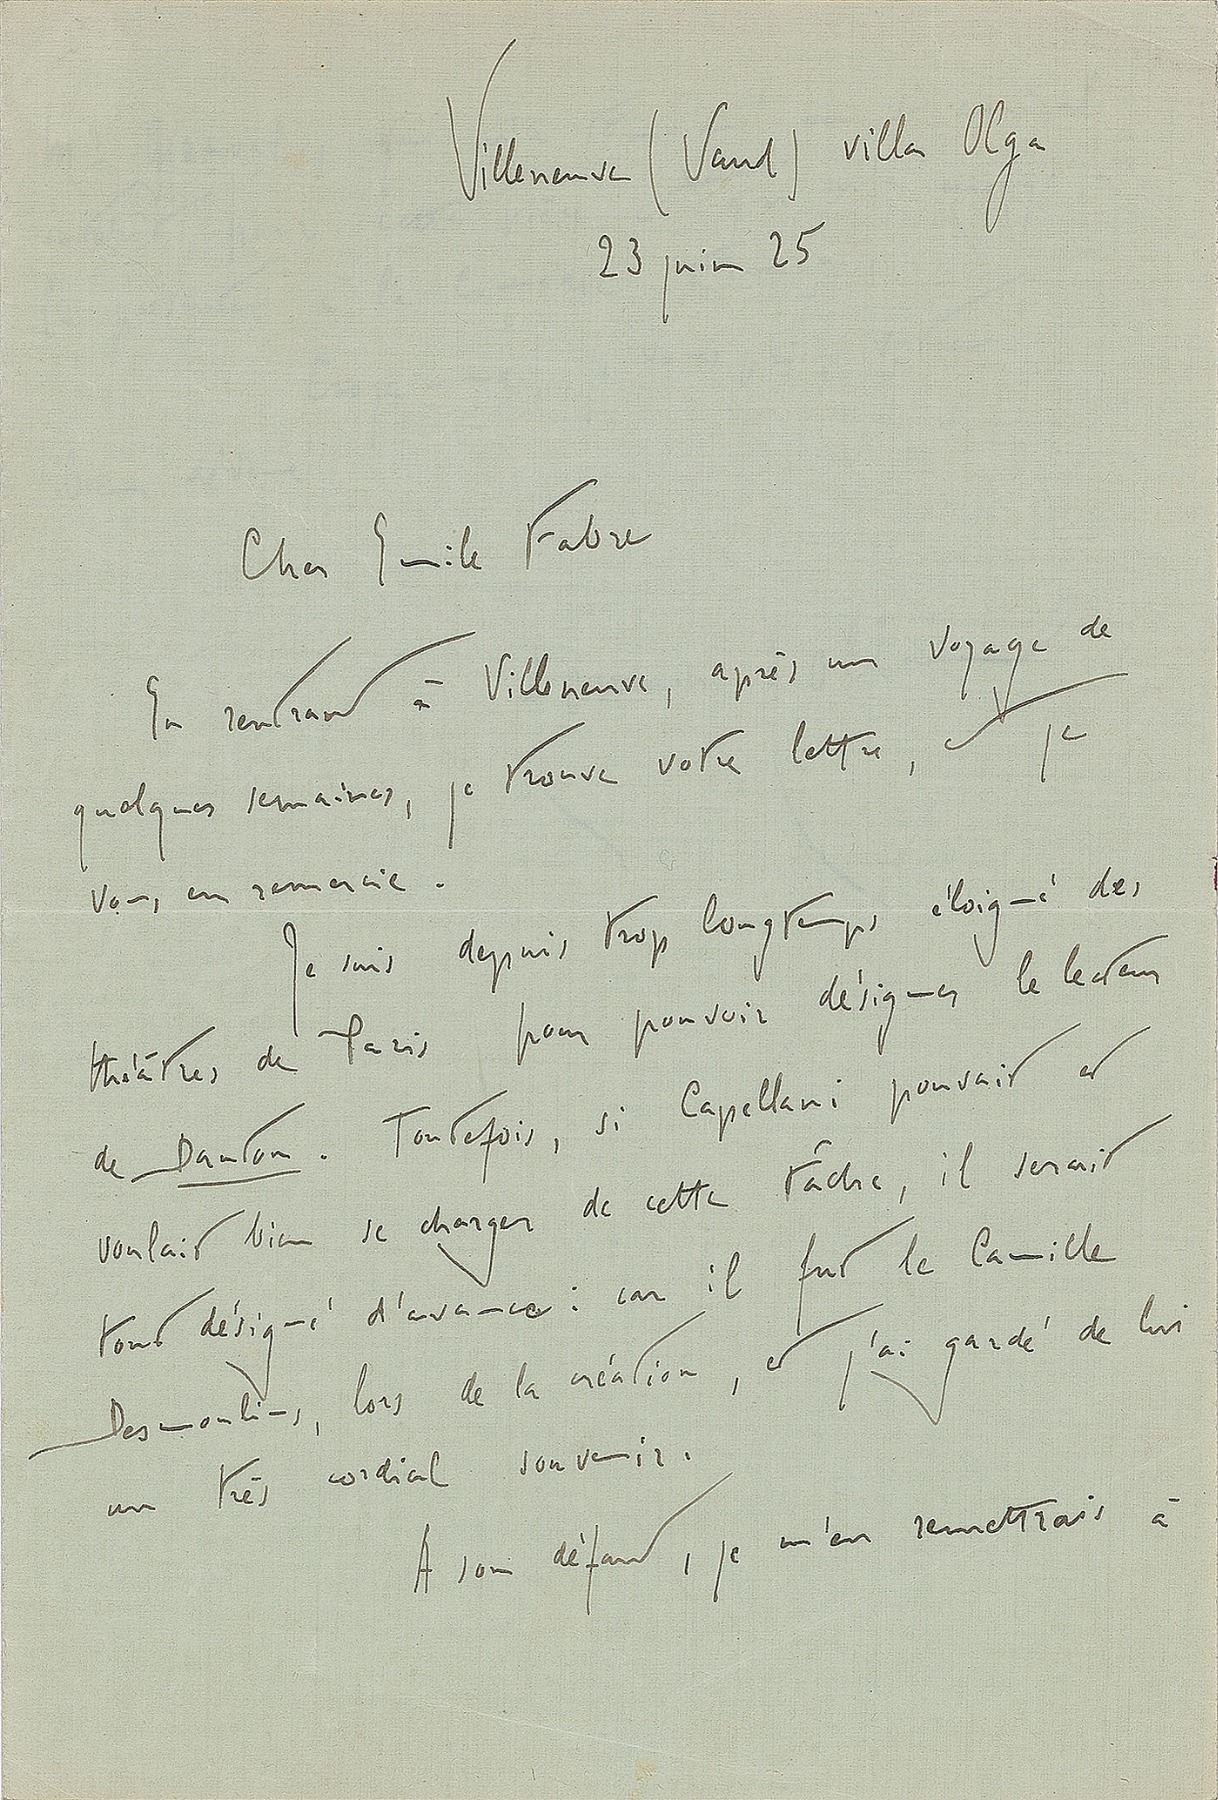 Villeneuve (Vaud) villa Olga
23 juin 25
Cher Emile Fabre
En rentrant à Villeneuve, après un voyage de
quelques semaines, je trouve votre lettre, et je
vous en remercie.
Je suis depuis trop longtemps éloigné des
théâtres de Paris pour pouvoir désigner le lecteur
de Danton. Toutefois, si Capellani pouvait et
voulait bien se charger de cette tâche, il serait
tout désigné d'avance : car il fut le Camille
Desmoulins, lors de la création, et j'ai gardé de lui
un très cordial souvenir.
A son défaut, je m'en remettrais à